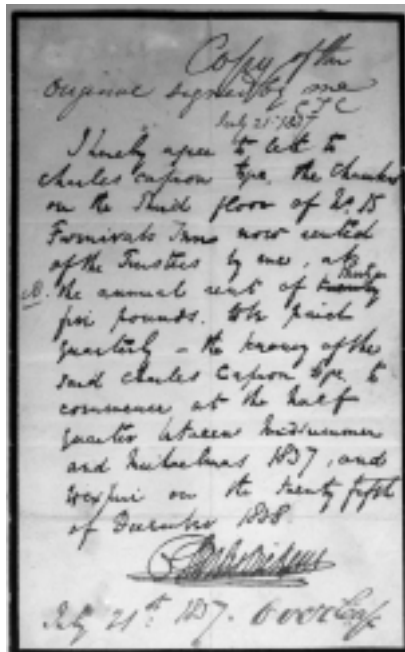 Copy of the
Original signed by me
C T C
July 21st 1837
I hereby agree to lett to
Charles Capron Esqre. the Chambers
on the Third floor of No. 15
Furnivals Inn now rented
of the Trustees by me, at
the annual rent of
five pounds. to be paid
quarterly – the tenancy of the
said Charles Capron Esqre. to
commence at the half
quarter between Midsummer
and Michaelmas 1837, and
to expire on the twenty fifth
of December 1838.
July 21st. 1837. Overleaf